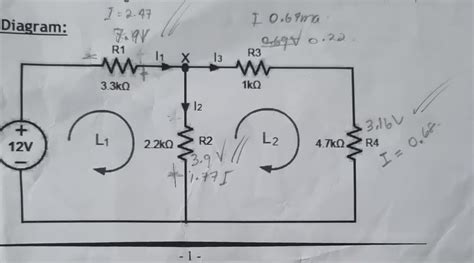 I = 2.47
7.9V
I 0.69ma
0.69V 0.22
Diagram:
R1
I1
X
I3
R3
3.3kΩ
1kΩ
I2
12V
L1
2.2kΩ
R2
L2
4.7kΩ
R4
3.16V
3.9V
1.77I
I = 0.68
- 1 -